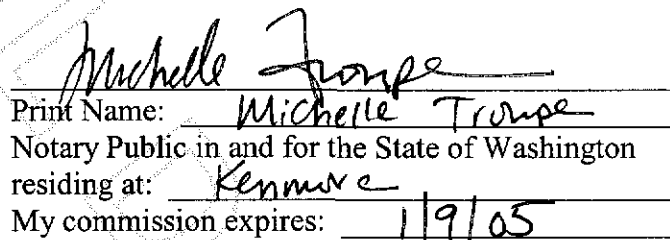 Michelle Troupe
Print Name: Michelle Troupe
Notary Public in and for the State of Washington
residing at: Kenmore
My commission expires: 1/9/05